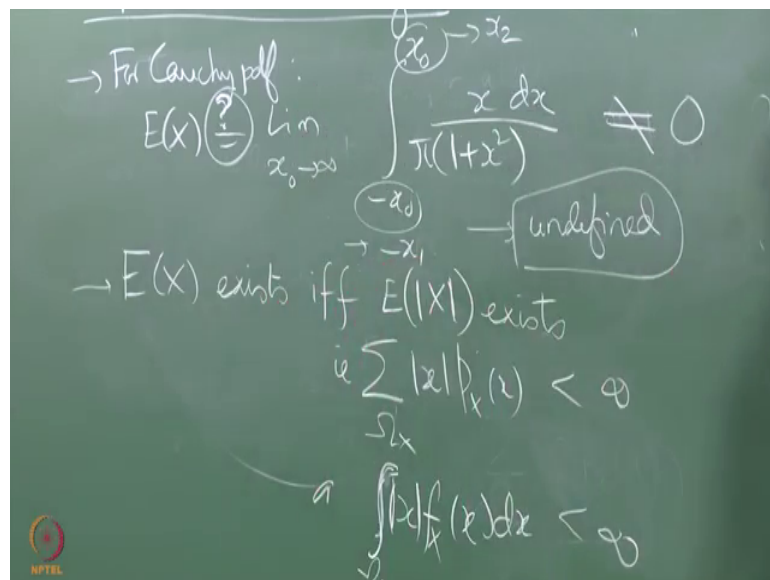 x₀ → x₂
→ For Cauchy pdf :
E(X) ?= Lim x₀→∞ ∫ x dx / π(1+x²) ≠ 0
-x₀
→ -x₁
→ undefined
→ E(X) exists iff E(|X|) exists
ie ∑ |x| pₓ(x) < ∞
Ωₓ
∫ |x| fₓ(x) dx < ∞
NPTEL